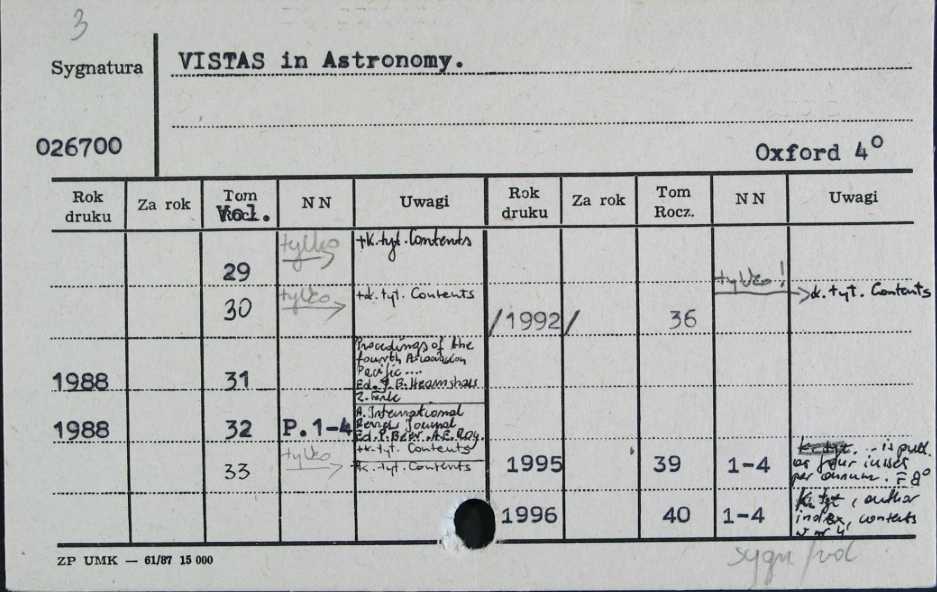 3
Sygnatura
VISTAS in Astronomy.
026700
Oxford 4º
Rok druku Za rok Tom Rocz. Vol. NN Uwagi Rok druku Za rok Tom Rocz. NN Uwagi
29 tylko +k.tyt. Contents
30 tylko +k.tyt. Contents
/1992/ 36 tylko! k.tyt. Contents
1988 31
Proceedings of the
fourth
Pacific ....
Ed.
1988 32 P.1-4
A. International
Review Journal
Ed. P. Beer. A.E. Roy.
+k.tyt. Contents
33 tylko k.tyt. Contents
1995 39 1-4
... is publ.
as four issues
per annum. F 8º
1996 40 1-4
K. tyt, author
index, contents
w nr 4
ZP UMK — 61/87 15 000
sygn